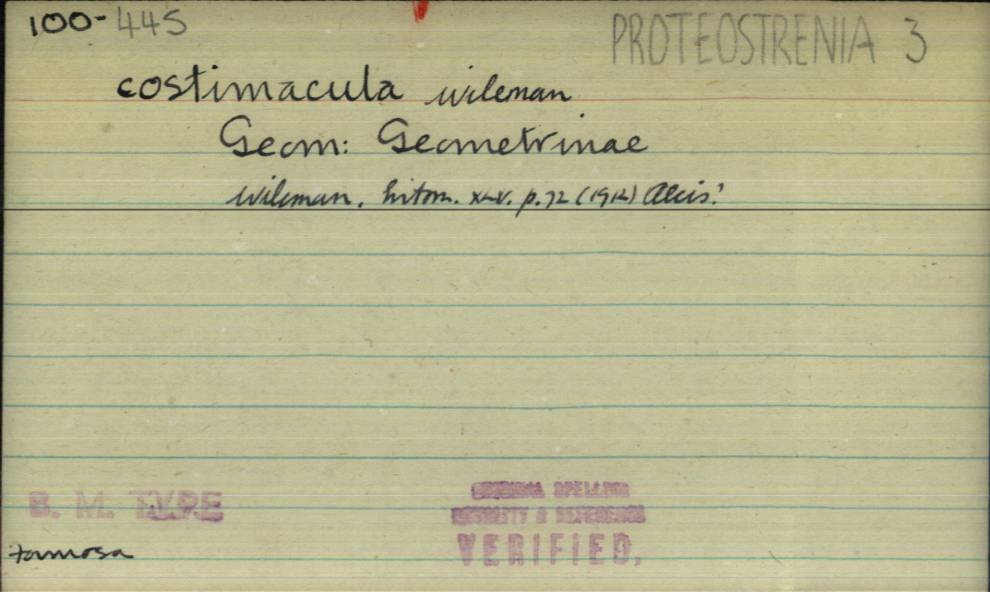 100-445
PROTEOSTRENIA 3
costimacula Wileman
Geom: Geometrinae
Wileman. Entom. XLV. p.72 (1912) Alcis!
B. M. TYPE
ORIGINAL SPELLING
LOCALITY & REFERENCE
VERIFIED.
Formosa